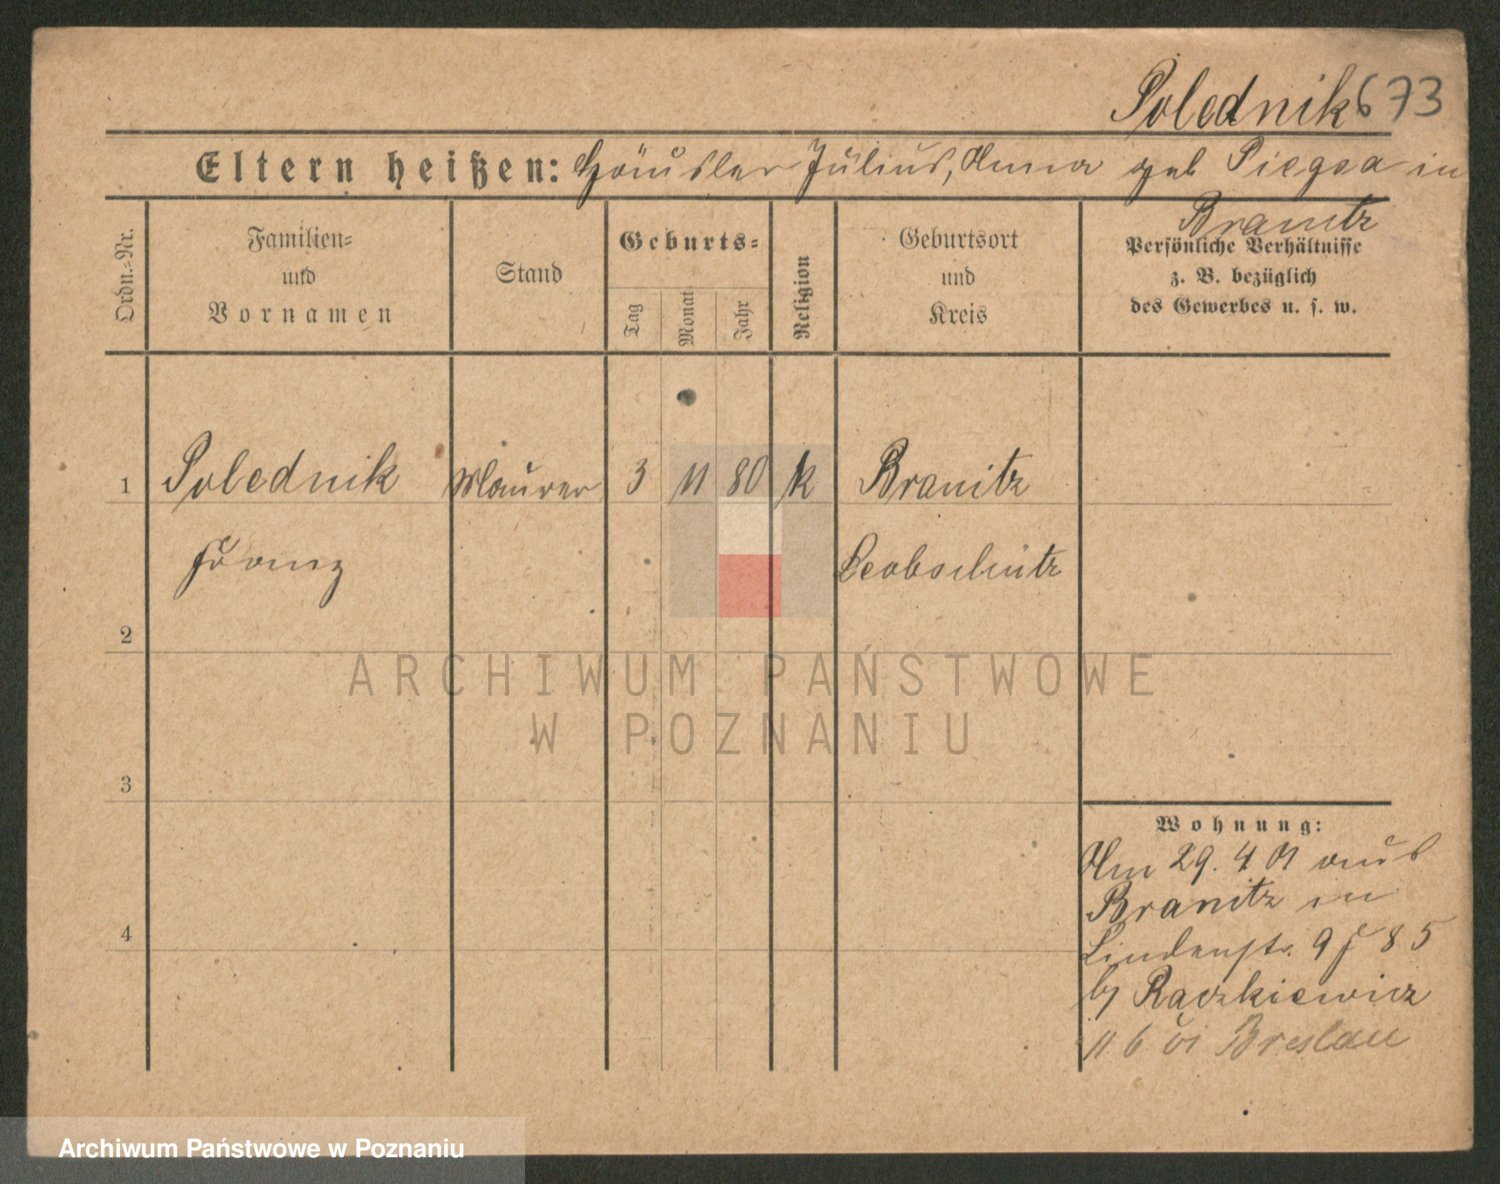 Polednik 673
Eltern heißen: Häusler Julius, Anna geb Piegsa in
Branitz
Ordn.-Nr.
Familien-
und
Vornamen
Stand
Geburts-
Tag
Monat
Jahr
Religion
Geburtsort
und
Kreis
Persönliche Verhältnisse
z. B. bezüglich
des Gewerbes u. s. w.
1 Polednik Maurer 3 11 80 k Branitz
Franz Leobschütz
2
3
4
Wohnung:
Am 29. 4 01 aus
Branitz in
Lindenstr. 9
by Raczkiewicz
11 6 01 Breslau
ARCHIWUM PAŃSTWOWE
W POZNANIU
Archiwum Państwowe w Poznaniu